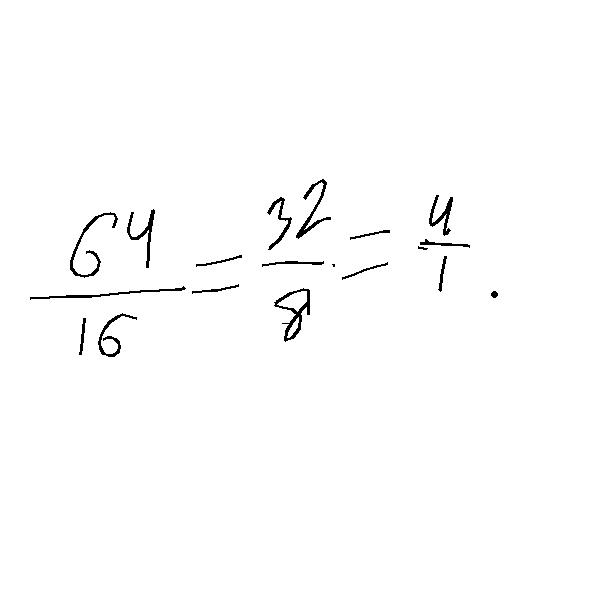 64/16 = 32/8 = 4/1.